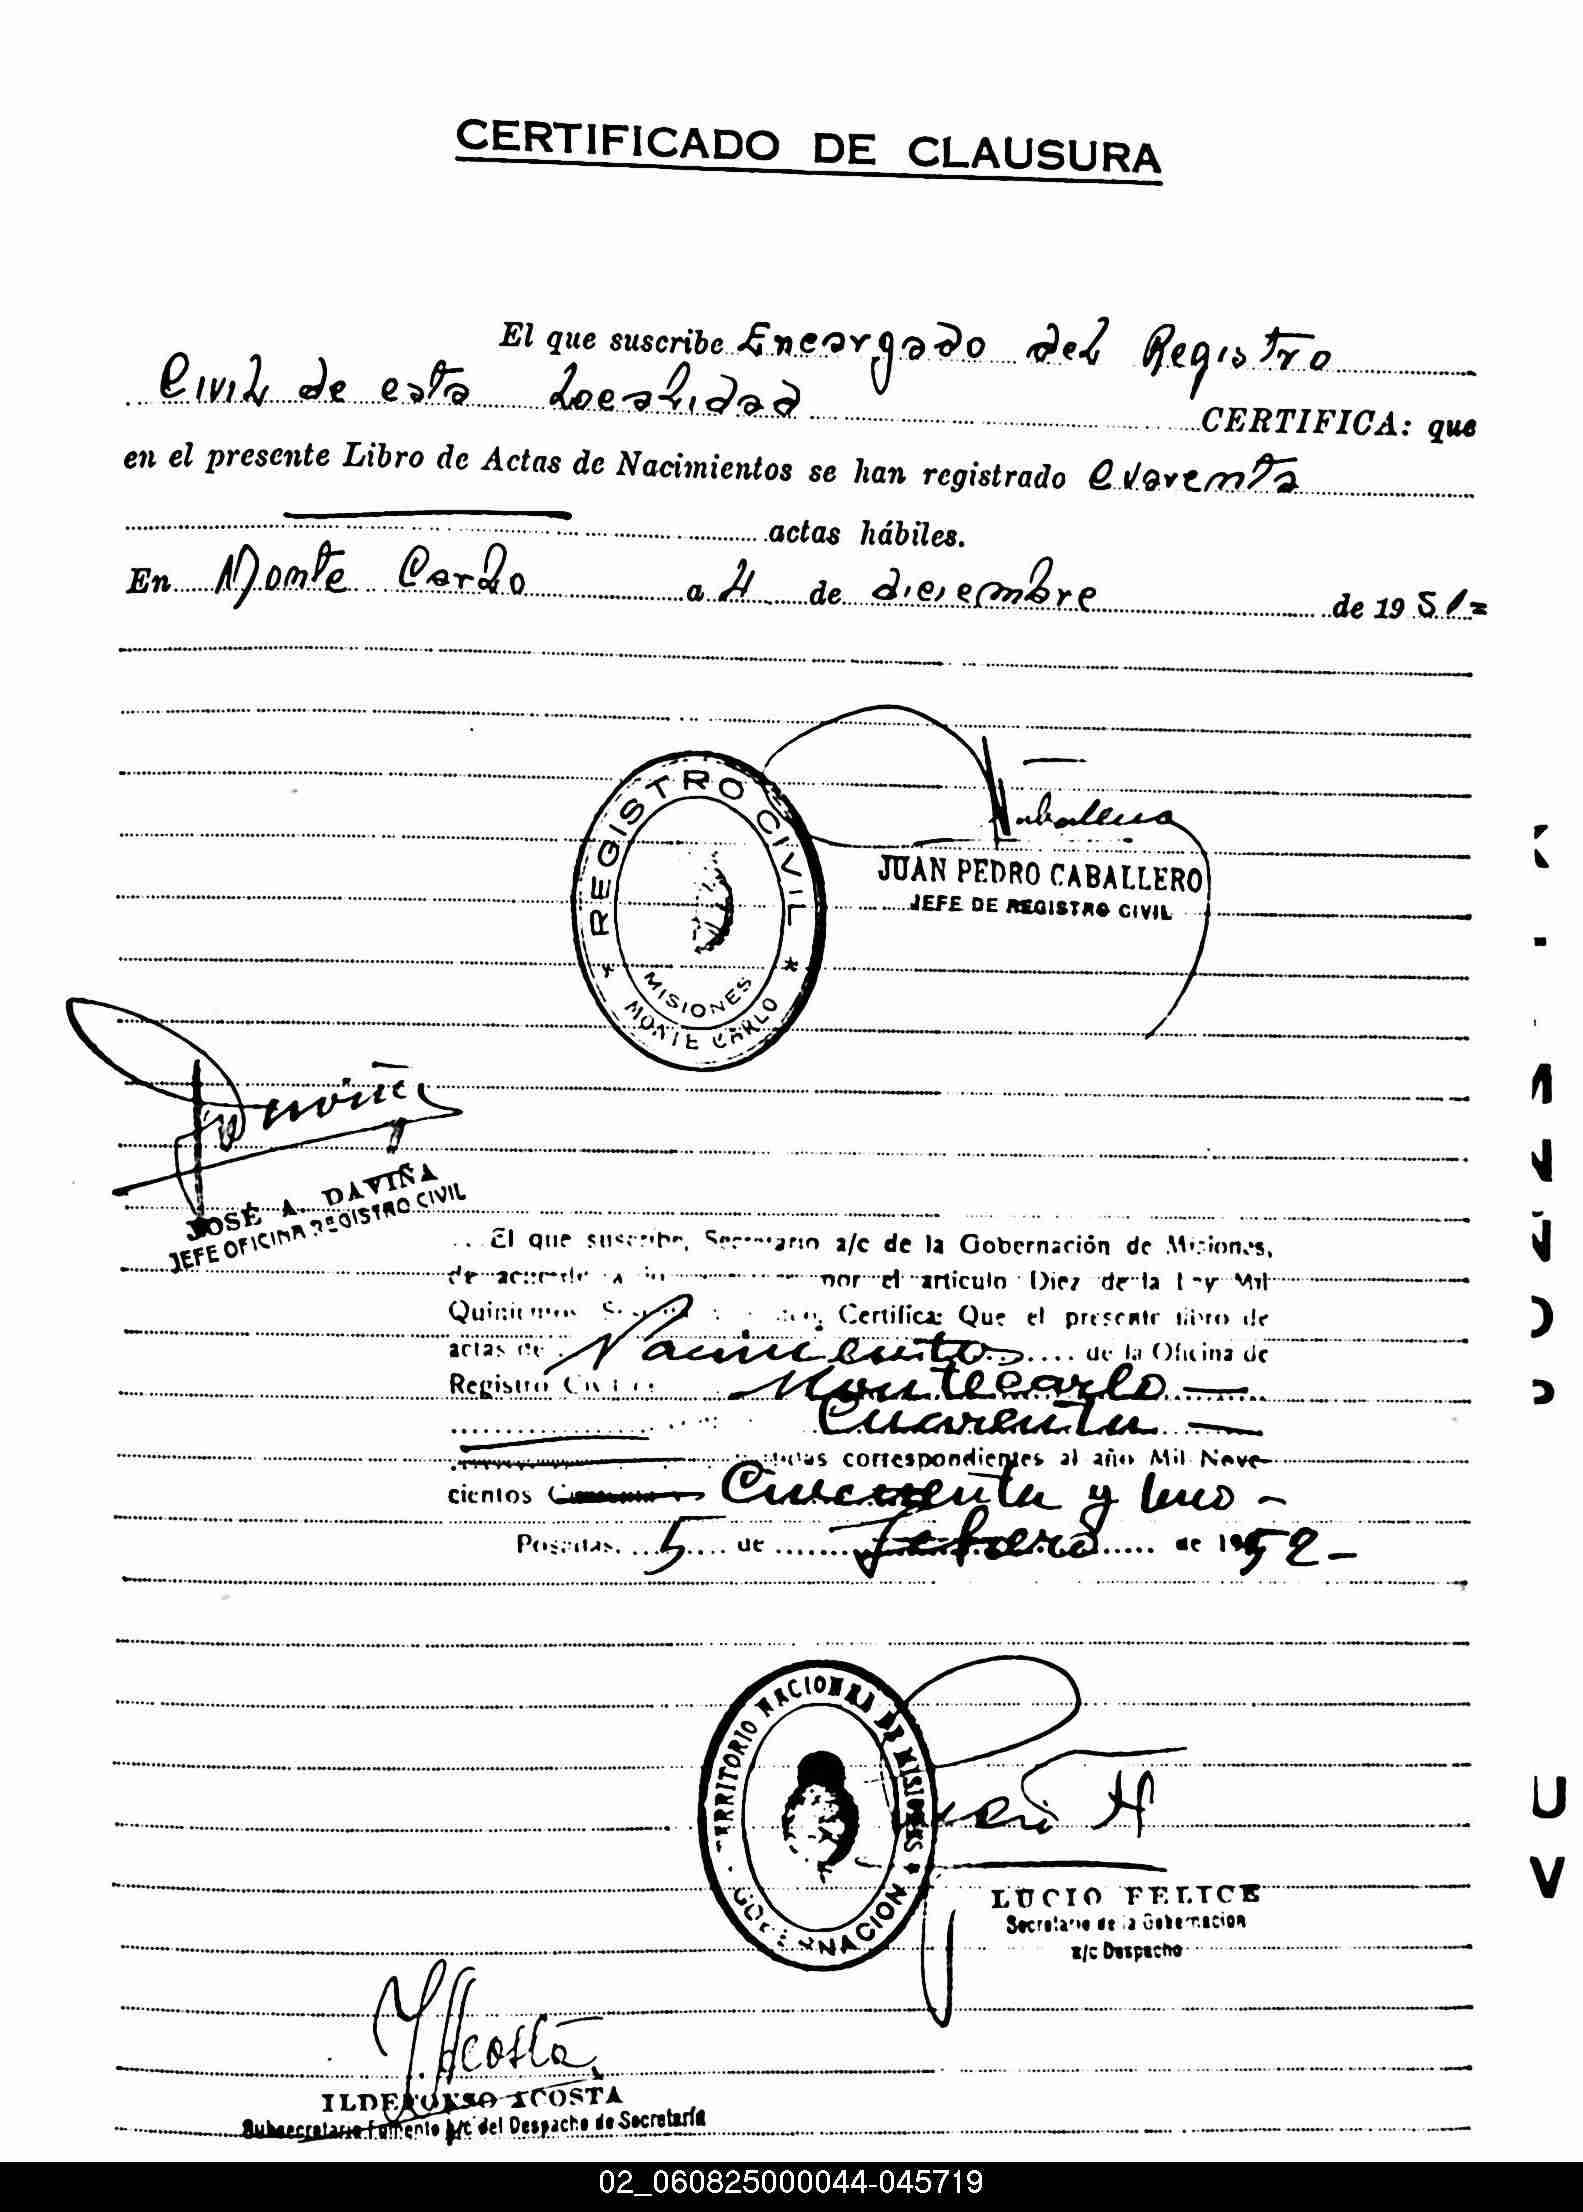 CERTIFICADO DE CLAUSURA
El que suscribe Encargado del Registro
Civil de esta Localidad CERTIFICA: que
en el presente Libro de Actas de Nacimientos se han registrado Cuarenta
actas hábiles.
En Monte Carlo a 4 de diciembre de 1951=
REGISTRO CIVIL
MISIONES
MONTE CARLO
Caballero
JUAN PEDRO CABALLERO
JEFE DE REGISTRO CIVIL
JOSÉ A. DAVIÑA
JEFE OFICINA REGISTRO CIVIL
El que suscribe, Secretario a/c de la Gobernación de Misiones,
de acuerdo a por el artículo Diez de la Ley Mil
Quinientos Certifica: Que el presente libro de
actas de Nacimiento de la Oficina de
Registro Civil Montecarlo
Cuarenta
correspondientes al año Mil Nove-
cientos Cincuenta y uno -
Posadas, 5 de Febrero de 1952-
TERRITORIO NACIONAL DE MISIONES
GOBERNACION
LUCIO FELICE
Secretario de la Gobernacion
a/c Despacho
Acosta
ILDEFONSO ACOSTA
Subsecretario Fomento a/c del Despacho de Secretaría
U
V
02_060825000044-045719